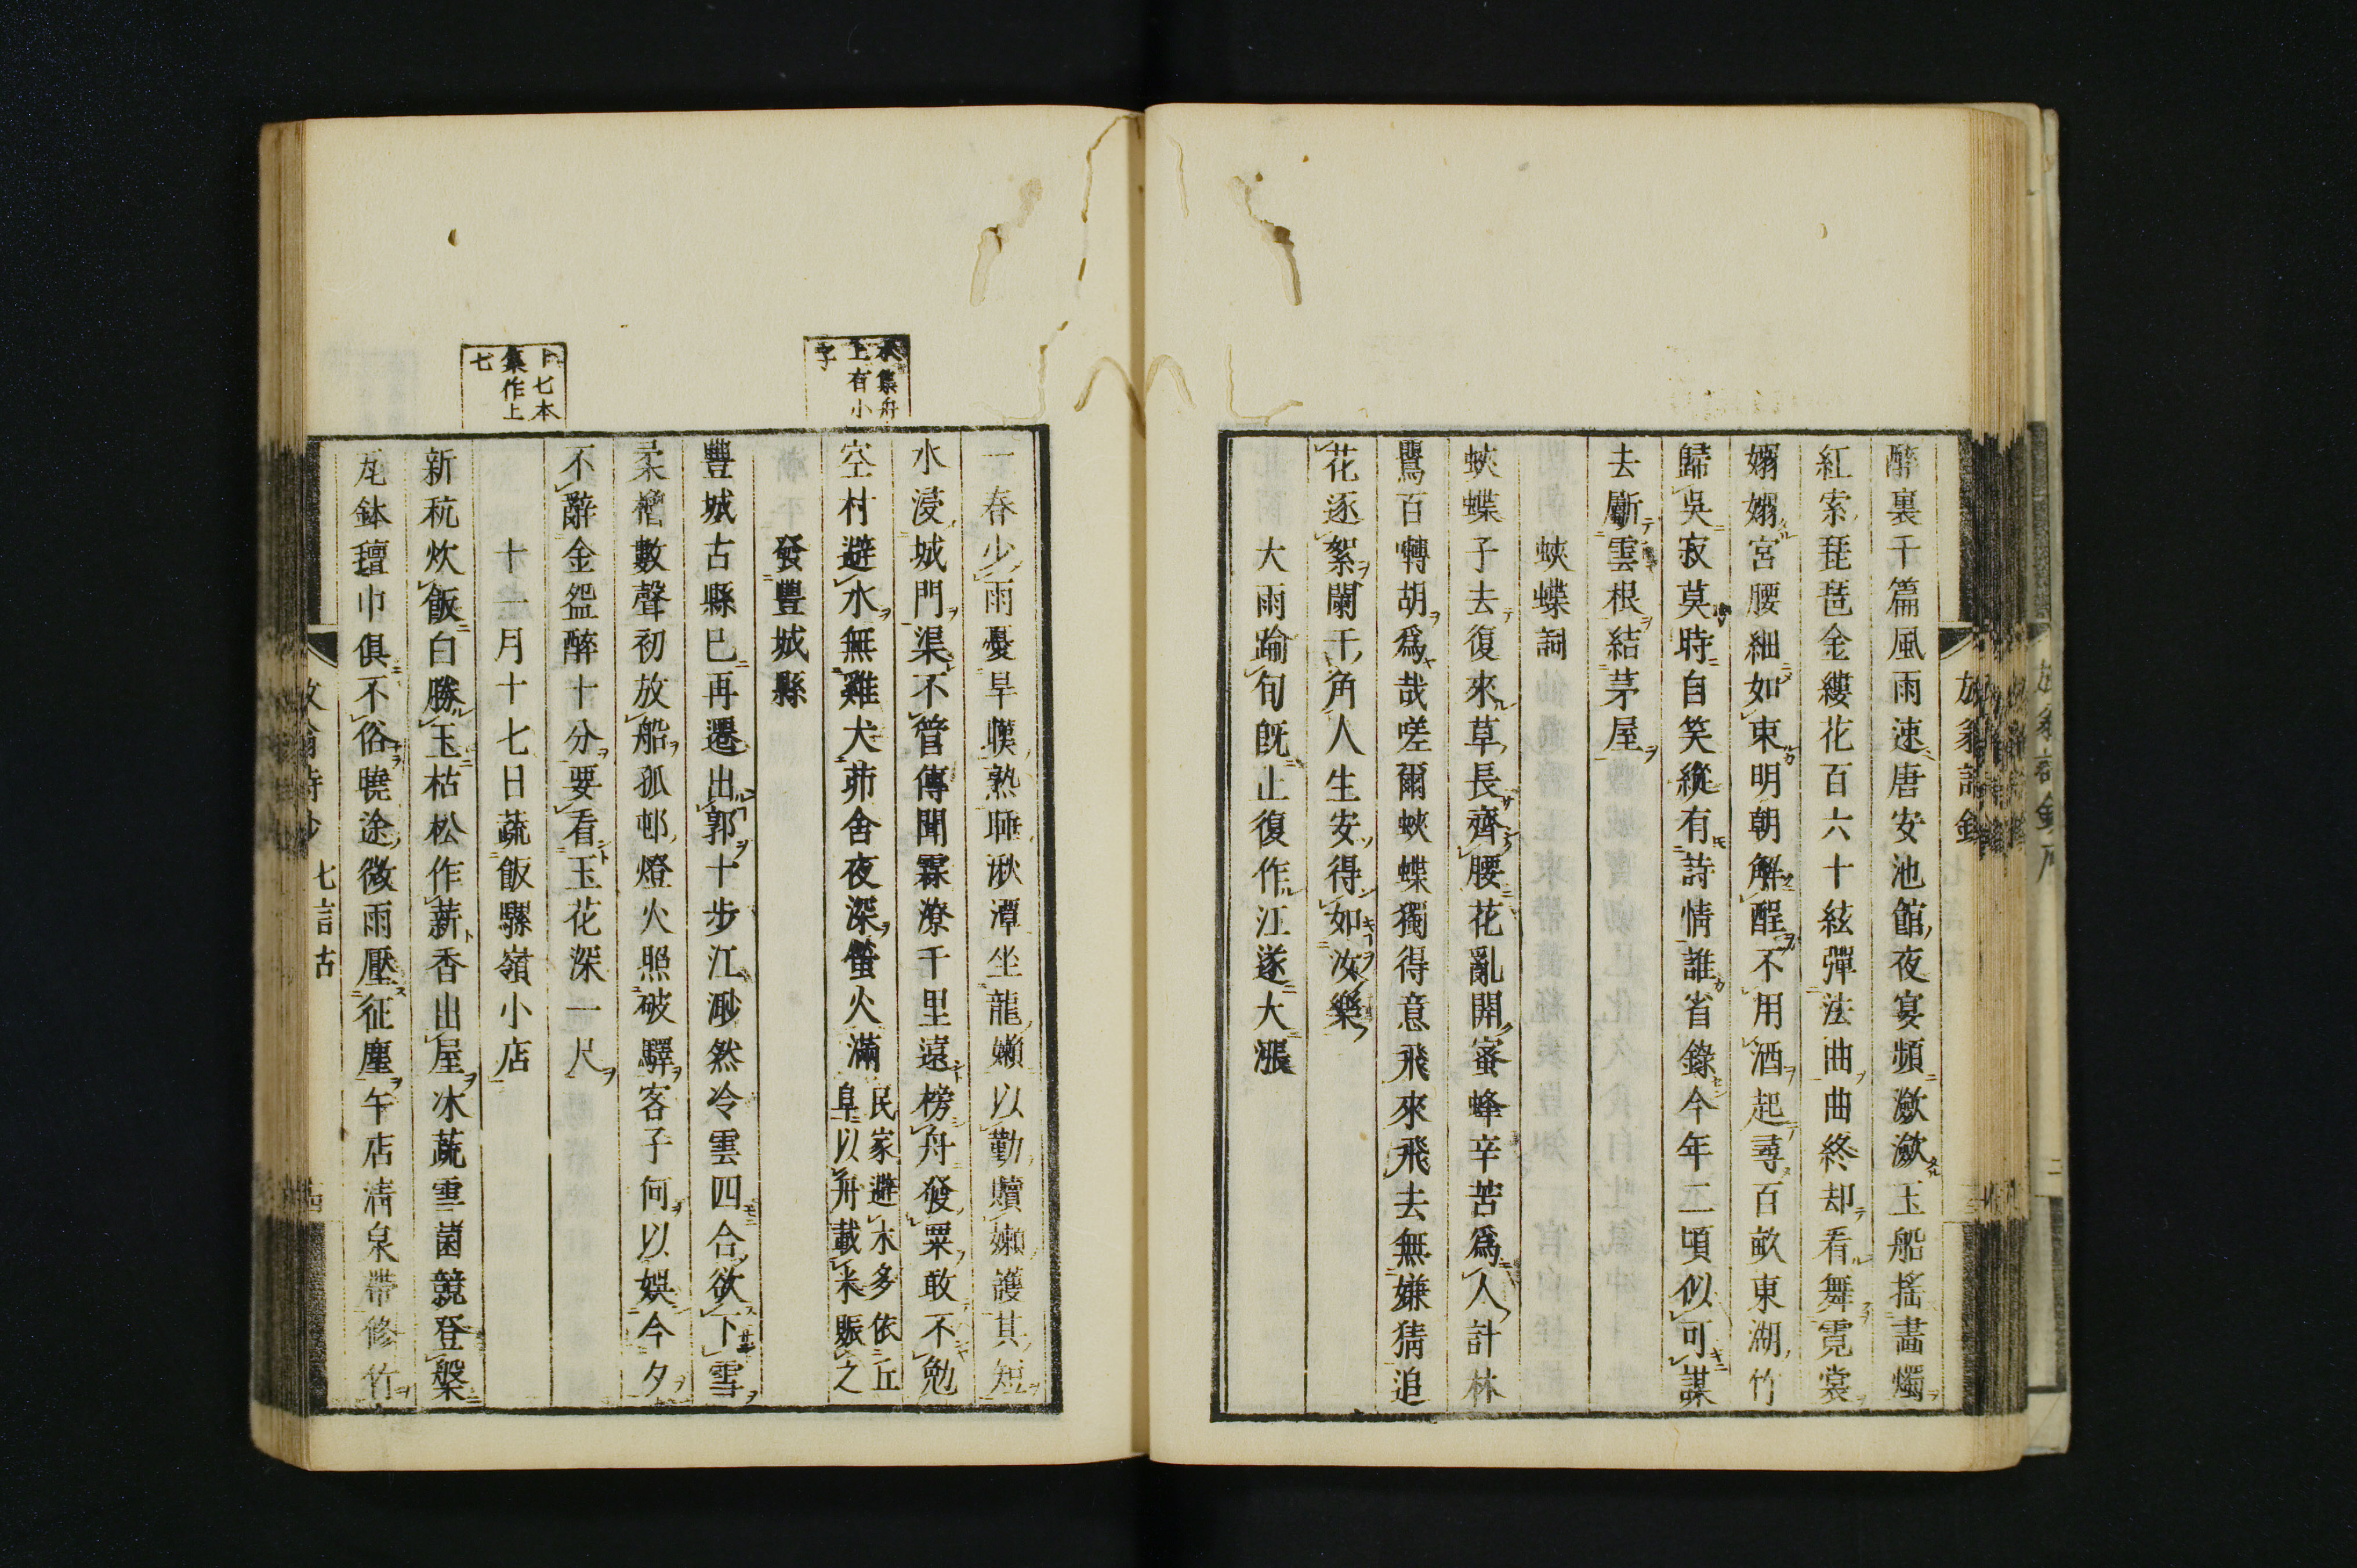 醉裏千篇風雨速唐安池館夜宴頻瀲瀲玉船搖畵燭
紅索琵琶金縷花百六十絃彈法曲曲終却看舞霓裳
嫋嫋宮腰細如束明朝解酲不用酒起尋百畝東湖竹
歸吳寂莫時自笑縱有詩情誰省錄今年二頃似可謀
去斸雲根結茅屋
蛺蝶詞
蛺蝶子去復來草長齊腰花亂開蜜蜂辛苦爲人計林
鸎百囀胡爲哉嗟爾蛺蝶獨得意飛來飛去無嫌猜追
花逐絮闌干角人生安得如汝樂
大雨踰旬旣止復作江遂大漲
一春少雨憂旱嘆熟睡湫潭坐龍嬾以勤贖嬾護其短
水浸城門渠不管傳聞霖潦千里遠榜舟發粟敢不勉
空村避水無雞犬茆舍夜深螢火滿
民家避水多依丘
阜以舟載米賑之
發豐城縣
豐城古縣已再遷出郭十步江渺然冷雲四合欲下雪
柔櫓數聲初放船孤邨燈火照破驛客子何以娛今夕
不辭金盌醉十分要看玉花深一尺
十一月十七日蔬飯騾嶺小店
新秔炊飯白勝玉枯松作薪香出屋冰蔬雪菌競登槃
瓦鉢氊巾俱不俗曉途微雨壓征塵午店淸泉帶修竹
本集舟
上有小
字
十七本
集作上
七
七言古